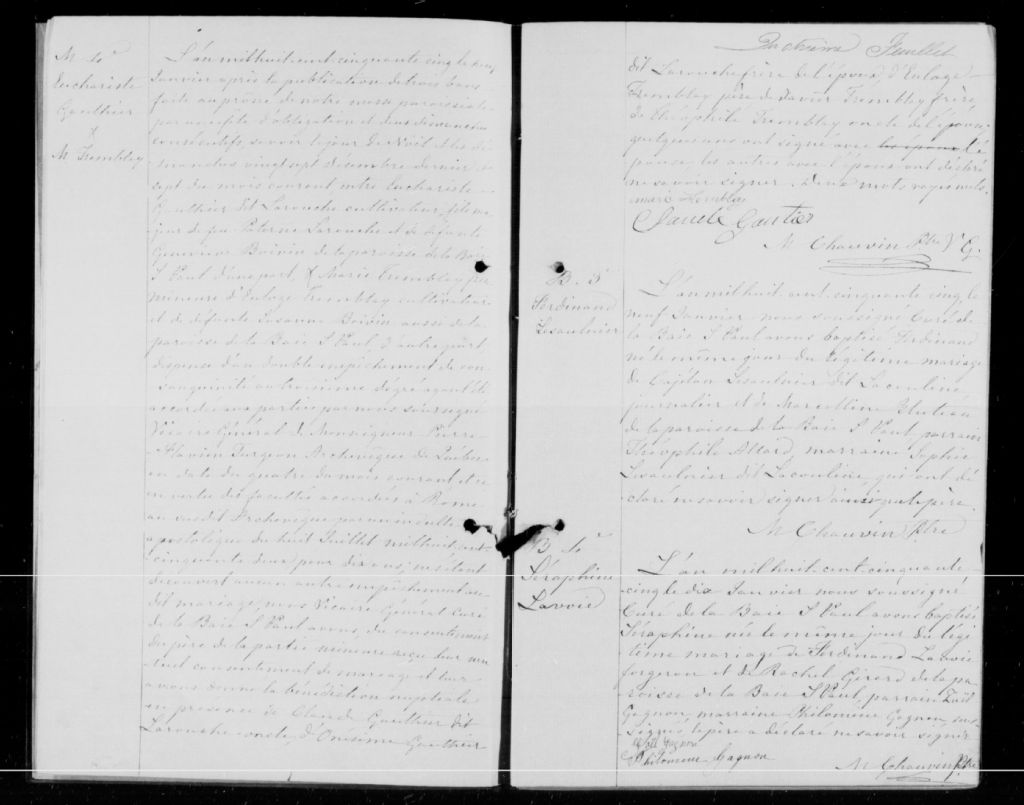 M 4e
Euchariste
Gauthier
&
M Tremblay
L'an mil huit cent cinquante cinq le
Janvier après la publication de trois bans
faite au prône de notre messe paroissiale
par un fête d'obligation et deux dimanches
consécutifs, savoir le jour de Noël et les di
manches vingt sept décembre dernier, et
sept du mois courant entre Euchariste
Gauthier dit Larouche cultivateur, fils ma
jeur de feu Paterne Larouche et de défunte
Geneviève Boivin de la paroisse de la Baie
S Paul d'une part, & Marie Tremblay fille
mineure d'Eulage Tremblay cultivateur
et de défunte Susanne Boivin aussi de la
paroisse de la Baie S Paul d'autre part,
dispense d'un double empêchement de con
sanguinité au troisième dégré ayant été
accordée aux parties par nous soussigné
Vicaire Général de Monseigneur Pierre
Flavien Turgeon Archevêque de Québec
en date du quatre du mois courant et ce
en vertu des facultés accordées à Rome
au susdit Archevêque par un indulte
apostolique du huit Juillet mil huit cent
cinquante deux pour dix ans, ne s'étant
découvert aucun autre empêchement au
dit mariage, nous Vicaire Général Curé
de la Baie S Paul avons, du consentement
du père de la partie mineure reçu leur mu
tuel consentement de mariage et leur
avons donné la bénédiction nuptiale
en présence de Claude Gauthier dit
Larouche oncle, d'Onésime Gauthier
Feuillet
dit Larouche frère de l'époux, d'Eulage
Tremblay père de Xavier Tremblay frère
de Théophile Tremblay oncle de l'épouse
quelques uns ont signé avec l'é
pouse, les autres avec l'époux ont déclaré
ne savoir signer. Deux mots rayés nuls.
marie tremblay
Claude Gautier
M Chauvin Ptre V G.
B. 3e
Ferdinand
Lesaulnier
L'an mil huit cent cinquante cinq le
neuf Janvier nous soussigné Curé de
la Baie S Paul avons baptisé Ferdinand
né le même jour du légitime mariage
de Capitan Lesaulnier dit Lacouline
journalier et de Marcelline Pluteau
de la paroisse de la Baie S Paul parrain
Théophile Allard, marraine Sophie
Lesaulnier dit Lacouline, qui ont dé
claré ne savoir signer ainsi que le père.
M Chauvin Ptre
B. 4e
Séraphine
Lavoie
L'an mil huit cent cinquante
cinq le dix Janvier nous soussigné
Curé de la Baie S Paul avons baptisé
Séraphine née le même jour du légi
time mariage de Ferdinand Lavoie
forgeron et de Rachel Girard de la pa
roisse de la Baie S Paul, parrain
Gagnon, marraine Philomène Gagnon, sous
signés le père a déclaré ne savoir signer
Gagnon
Philomene Gagnon
M Chauvin Ptre